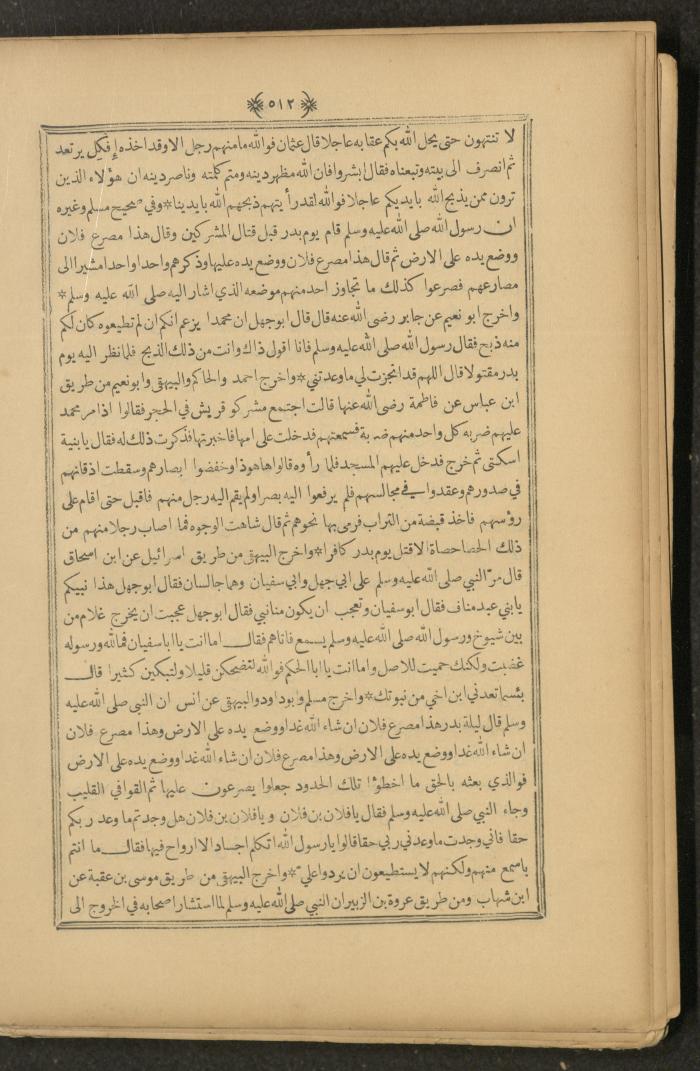 ٥١٢
لا تنتهون حتى يحل الله بكم عقابه عاجلا قال عثمان فوالله ما منهم رجل الا وقد اخذه إفكل يرتعد
ثم انصرف الى بيته وتبعناه فقال ابشروا فان الله مظهر دينه ومتم كلمته وناصر دينه ان هؤلاء الذين
ترون ممن يذبح الله بايديكم عاجلا فوالله لقد رأيتهم ذبحهم الله بايدينا * وفي صحيح مسلم وغيره
ان رسول الله صلى الله عليه وسلم قام يوم بدر قبل قتال المشركين وقال هذا مصرع فلان
ووضع يده على الارض ثم قال هذا مصرع فلان ووضع يده عليها وذكرهم واحدا واحدا مشيرا الى
مصارعهم فصرعوا كذلك ما تجاوز احد منهم موضعه الذي اشار اليه صلى الله عليه وسلم *
واخرج ابو نعيم عن جابر رضى الله عنه قال قال ابو جهل ان محمدا يزعم انكم ان لم تطيعوه كان لكم
منه ذبح فقال رسول الله صلى الله عليه وسلم فانا اقول ذاك وانت من ذلك الذبح فلما نظر اليه يوم
بدر مقتولا قال اللهم قد انجزت لي ما وعدتني * واخرج احمد والحاكم والبيهقي وابو نعيم من طريق
ابن عباس عن فاطمة رضى الله عنها قالت اجتمع مشركو قريش في الحجر فقالوا اذا مر محمد
عليهم ضربه كل واحد منهم ضربة فسمعتهم فدخلت على امها فاخبرتها فذكرت ذلك له فقال يا بنية
اسكتي ثم خرج فدخل عليهم المسجد فلما رأوه قالوا ها هو ذا وخفضوا ابصارهم وسقطت اذقانهم
في صدورهم وعقدوا في مجالسهم فلم يرفعوا اليه بصرا ولم يقم اليه رجل منهم فاقبل حتى اقام على
رؤسهم فاخذ قبضة من التراب فرمى بها نحوهم ثم قال شاهت الوجوه فما اصاب رجلا منهم من
ذلك الحصا حصاة الا قتل يوم بدر كافرا * واخرج البيهقي من طريق اسرائيل عن ابن اسحاق
قال مر النبي صلى الله عليه وسلم على ابي جهل وابي سفيان وهما جالسان فقال ابو جهل هذا نبيكم
يا بني عبد مناف فقال ابو سفيان وتعجب ان يكون منا نبي فقال ابو جهل عجبت ان يخرج غلام من
بين شيوخ ورسول الله صلى الله عليه وسلم يسمع فاتاهم فقال اما انت يا ابا سفيان فما لله ورسوله
غضبت ولكنك حميت للاصل واما انت يا ابا الحكم فوالله لتضحكن قليلا ولتبكين كثيرا قال
بئسما تعدني ابن اخي من نبوتك * واخرج مسلم وابو داود والبيهقي عن انس ان النبي صلى الله عليه
وسلم قال ليلة بدر هذا مصرع فلان ان شاء الله غدا ووضع يده على الارض وهذا مصرع فلان
ان شاء الله غدا ووضع يده على الارض وهذا مصرع فلان ان شاء الله غدا ووضع يده على الارض
فوالذي بعثه بالحق ما اخطؤا تلك الحدود جعلوا يصرعون عليها ثم القوا في القليب
وجاء النبي صلى الله عليه وسلم فقال يا فلان بن فلان ويا فلان بن فلان هل وجدتم ما وعد ربكم
حقا فاني وجدت ما وعدني ربي حقا قالوا يا رسول الله اتكلم اجسادا لا ارواح فيها فقال ما انتم
باسمع منهم ولكنهم لا يستطيعون ان يردوا علي * واخرج البيهقي من طريق موسى بن عقبة عن
ابن شهاب ومن طريق عروة بن الزبير ان النبي صلى الله عليه وسلم لما استشار اصحابه في الخروج الى